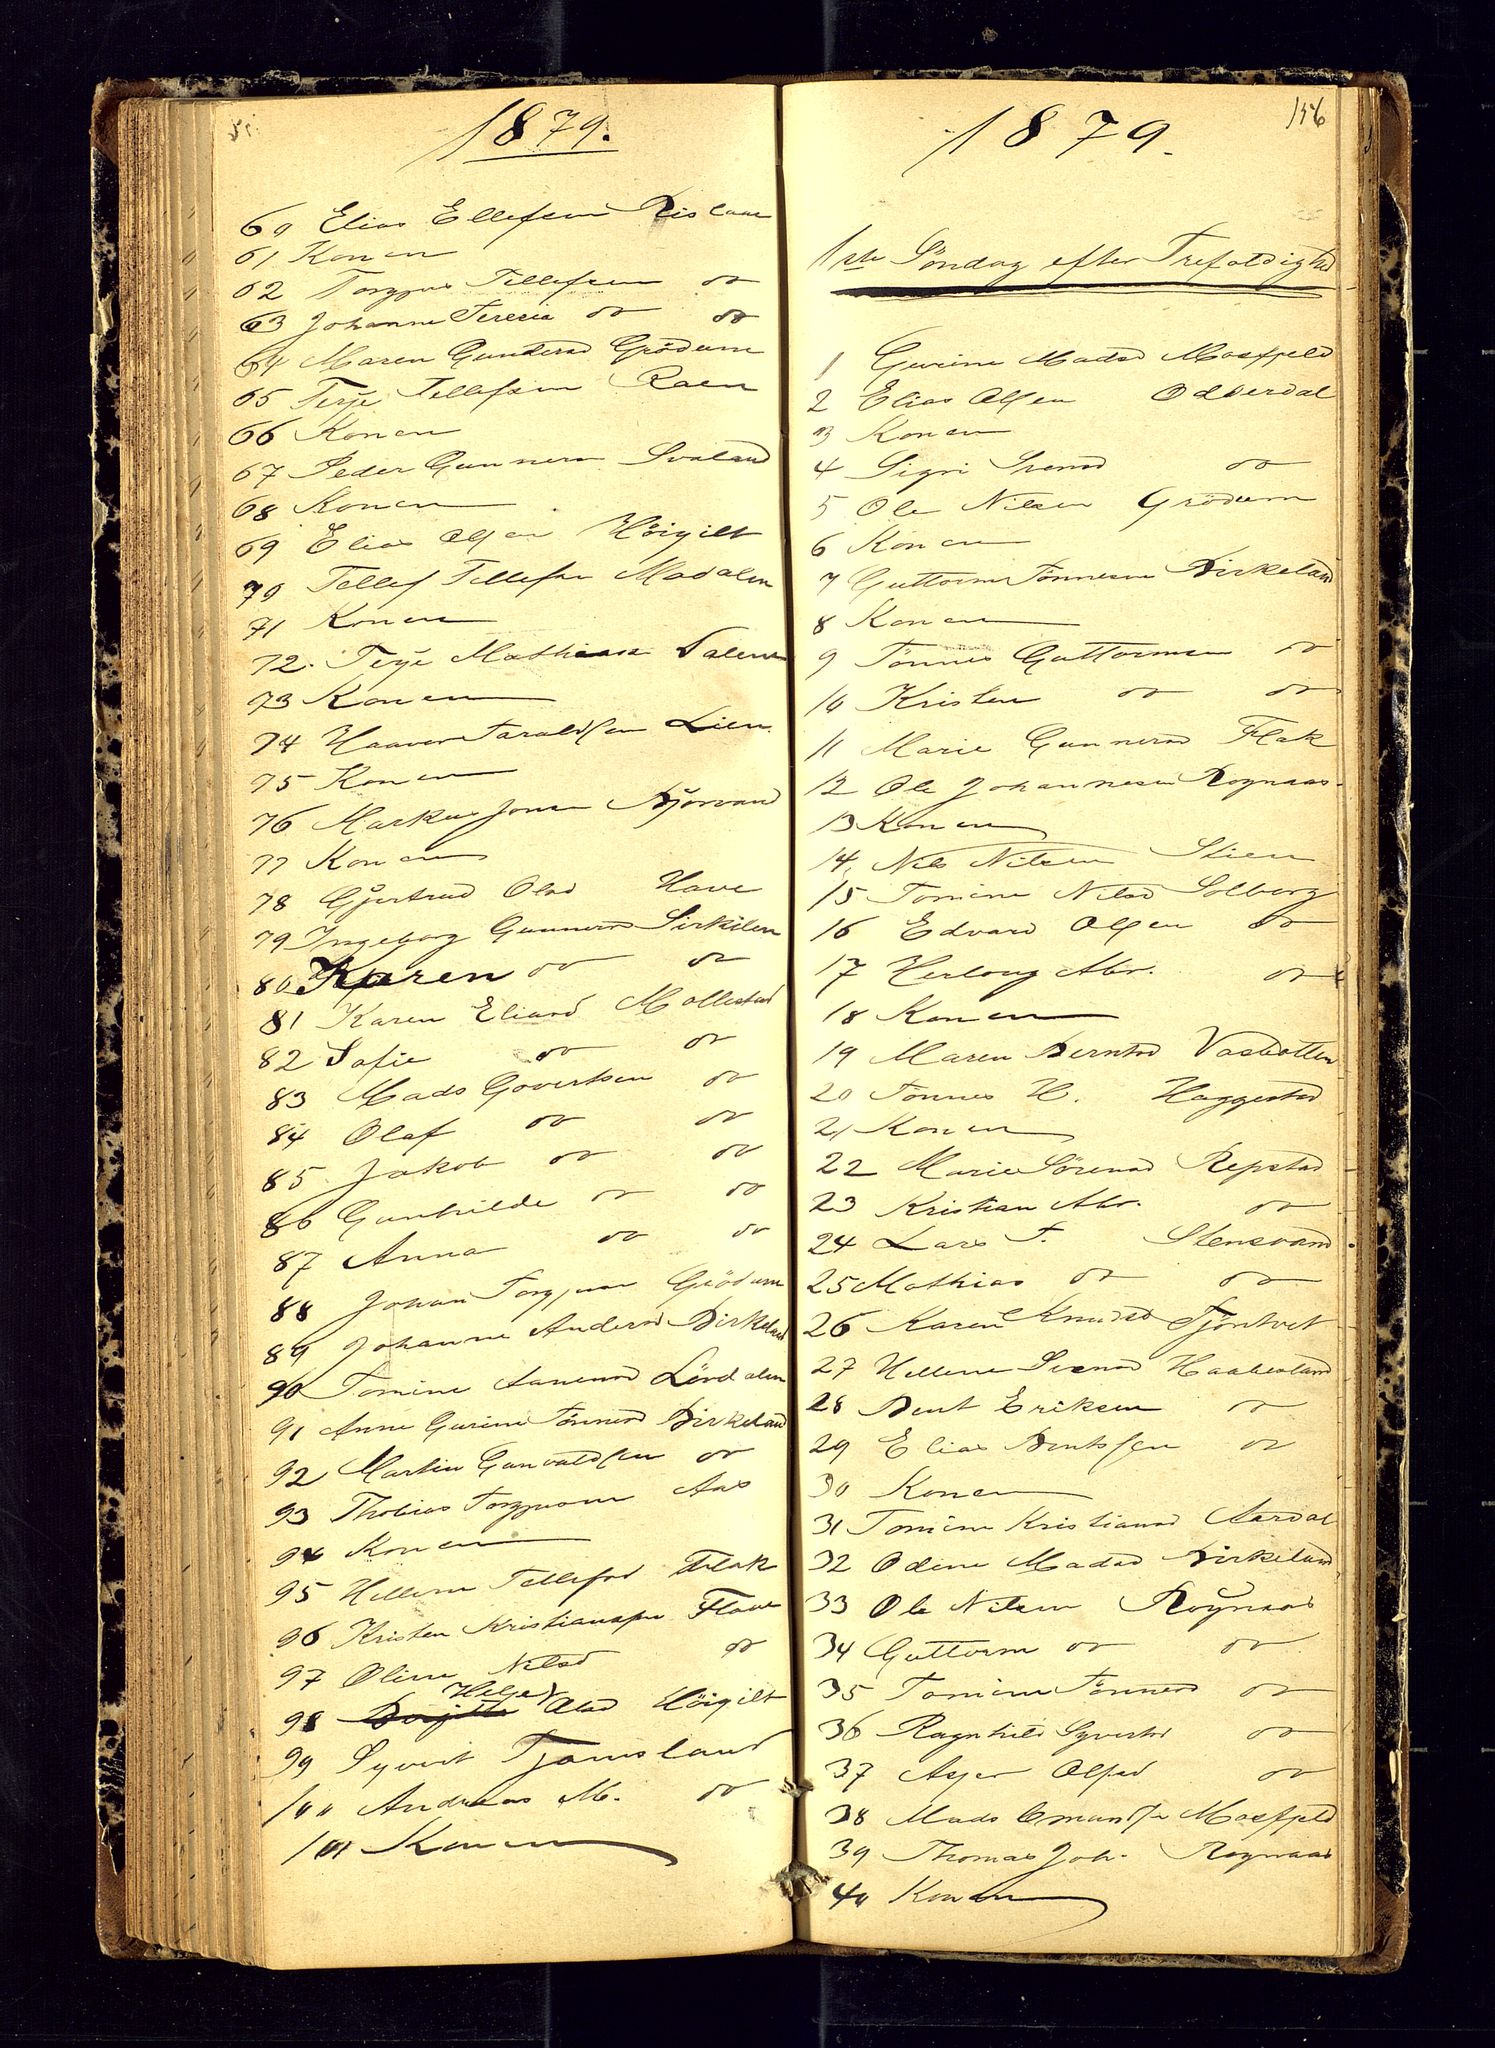 1879.
60 Elias Ellefsen Rislaae
61 Konen
62 Torjus Tellefsen do
63 Johanne Teresia do do
64 Maren Gundersd Grödum
65 Terje Tellefsen Raen
66 Konen
67 Peder Gunnersn Svaland
68 Konen
69 Elias Olsen Höigilt
70 Tellef Tellefsn Madalen
71 Konen
72. Terje Mathiasn Dalene
73 Konen
74 Haaver Taraldsen Lien
75 Konen
76 Markus Jonsn Bjorvand
77 Konen
78 Gjertrud Olsd Have
79 Ingeborg Gunnersd Birkelen
80 Karen do do
81 Karen Eliasd Mollestad
82 Sofie do do
83 Mads Govertsen do
84 Olaf do do
85 Jakob do do
86 Gunhilde do do
87 Anna do do
88 Johan Torjusn Grödum
89 Johanne Andersd Birkeland
90 Tomine Aanensd Lördalen
91 Anne Gurine Tönnesd Birkeland
92 Martin Gunvaldsen do
93 Thobias Torjusen Aas
94 Konen
95 Hellene Tellefsd Flak
96 Kristen Kristiansen Flaae
97 Oline Nilsd do
98 Birgitte Helje Olsd Höigilt
99 Syvert Tjomsland
100 Andreas M. do
101 Konen
156
1879.
1ste Söndag efter Trefoldighed
1 Gurine Madsd Mosfjeld
2 Elias Olsen Odderdal
3 Konen
4 Sigri Svensd do
5 Ole Nilsen Grödum
6 Konen
7 Guttorm Tönnesen Birkeland
8 Konen
9 Tönnes Guttormsen do
10 Kristen do do
11 Marie Gunnersd Flak
12 Ole Johannesen Rognaas
13 Konen
14, Nils Nilsen Stien
15 Tomine Nilsd Solberg
16 Edvard Olsen do
17 Herlaug Abr. do
18 Konen
19 Maren Berntsd Vasbotten
20 Tönnes H. Haggestad
21 Konen
22 Marie Sörensd Repstad
23 Kristian Abr. do
24 Lars T. Stensvand
25 Mathias do do
26 Karen Knudsd Tjöntvet
27 Hellene Svensd Haabesland
28 Bent Eriksen do
29 Elias Bentsen do
30 Konen
31 Tomine Kristiansd Aardal
32 Odine Madsd Birkeland
33 Ole Nilsen Rognaas
34 Guttorm do do
35 Tomine Tönnesd do
36 Ragnhild Syvertsd do
37 Asjer Olsd do
38 Mads Omundsn Mosfjeld
39 Thomas Joh. Rognaas
40 Konen